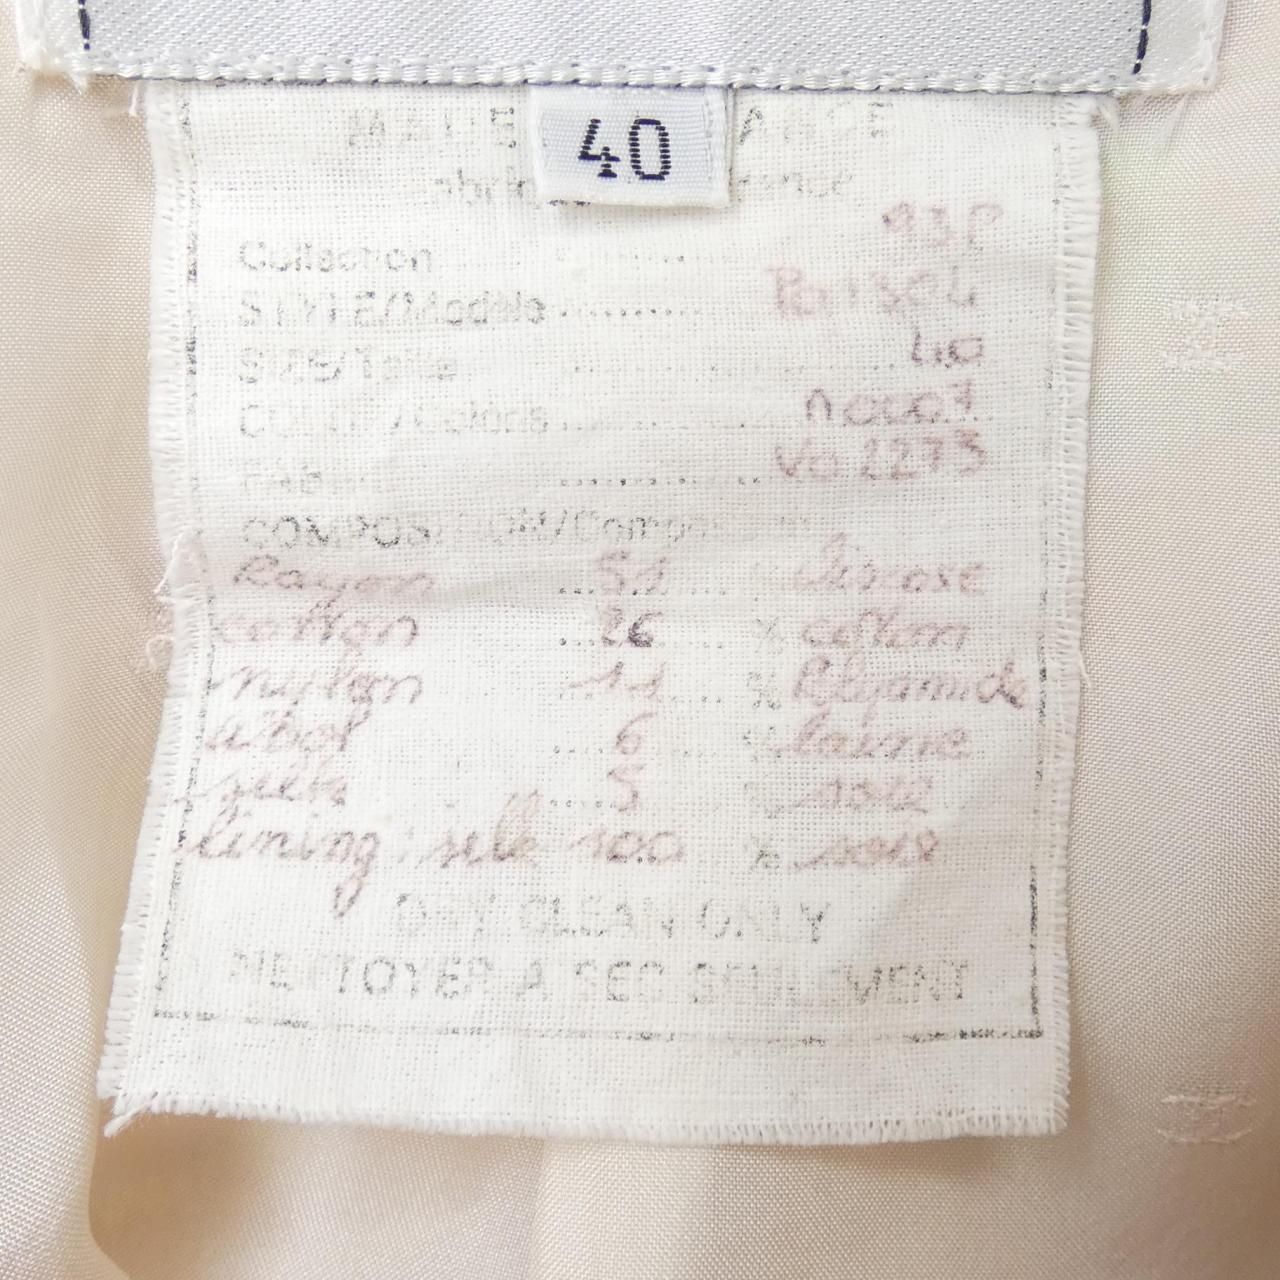 40
93P
Collection ..........
STYLE/Modèle .......... P01304
SIZE/Taille .......... 40
COLOR/Coloris ..........
FABRIC .......... V02273
COMPOSITION/Composition
Rayon ... 51 % Viscose
cotton ... 26 % coton
nylon ... 11 % Polyamide
wool ... 6 % laine
silk ... 5 % soie
lining : silk 100 % soie
DRY CLEAN ONLY
NETTOYER A SEC SEULEMENT